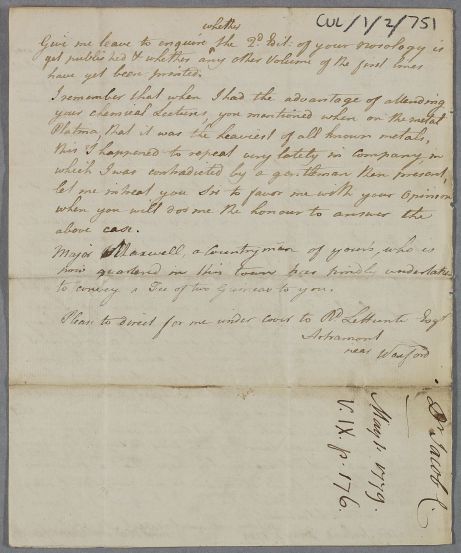 CUL/1/2/751
whether
Give me leave to enquire the 2d. Edit. of your nosology is
yet published & whether any other Volume of the first lines
have yet been printed.
I remember that when I had the advantage of attending
your chemical Lectures, you mentioned when on the metal
Platina, that it was the heaviest of all known metals,
this I happened to repeat very lately in company in
which I was contradicted by a gentleman then present,
let me intreat you Sir to favor me with your Opinion
when you will do me the honour to answer the
above case.
Major Maxwell, a Countryman of yours, who is
now quartered in this town has kindly undertaken
to convey a Fee of two Guineas to you.
Please to direct for me under cover to Rd. LeHunte Esqr.
Artramont
near Wexford
Dr. Jacob C.
May 1. 1779.
V. IX. p. 176.